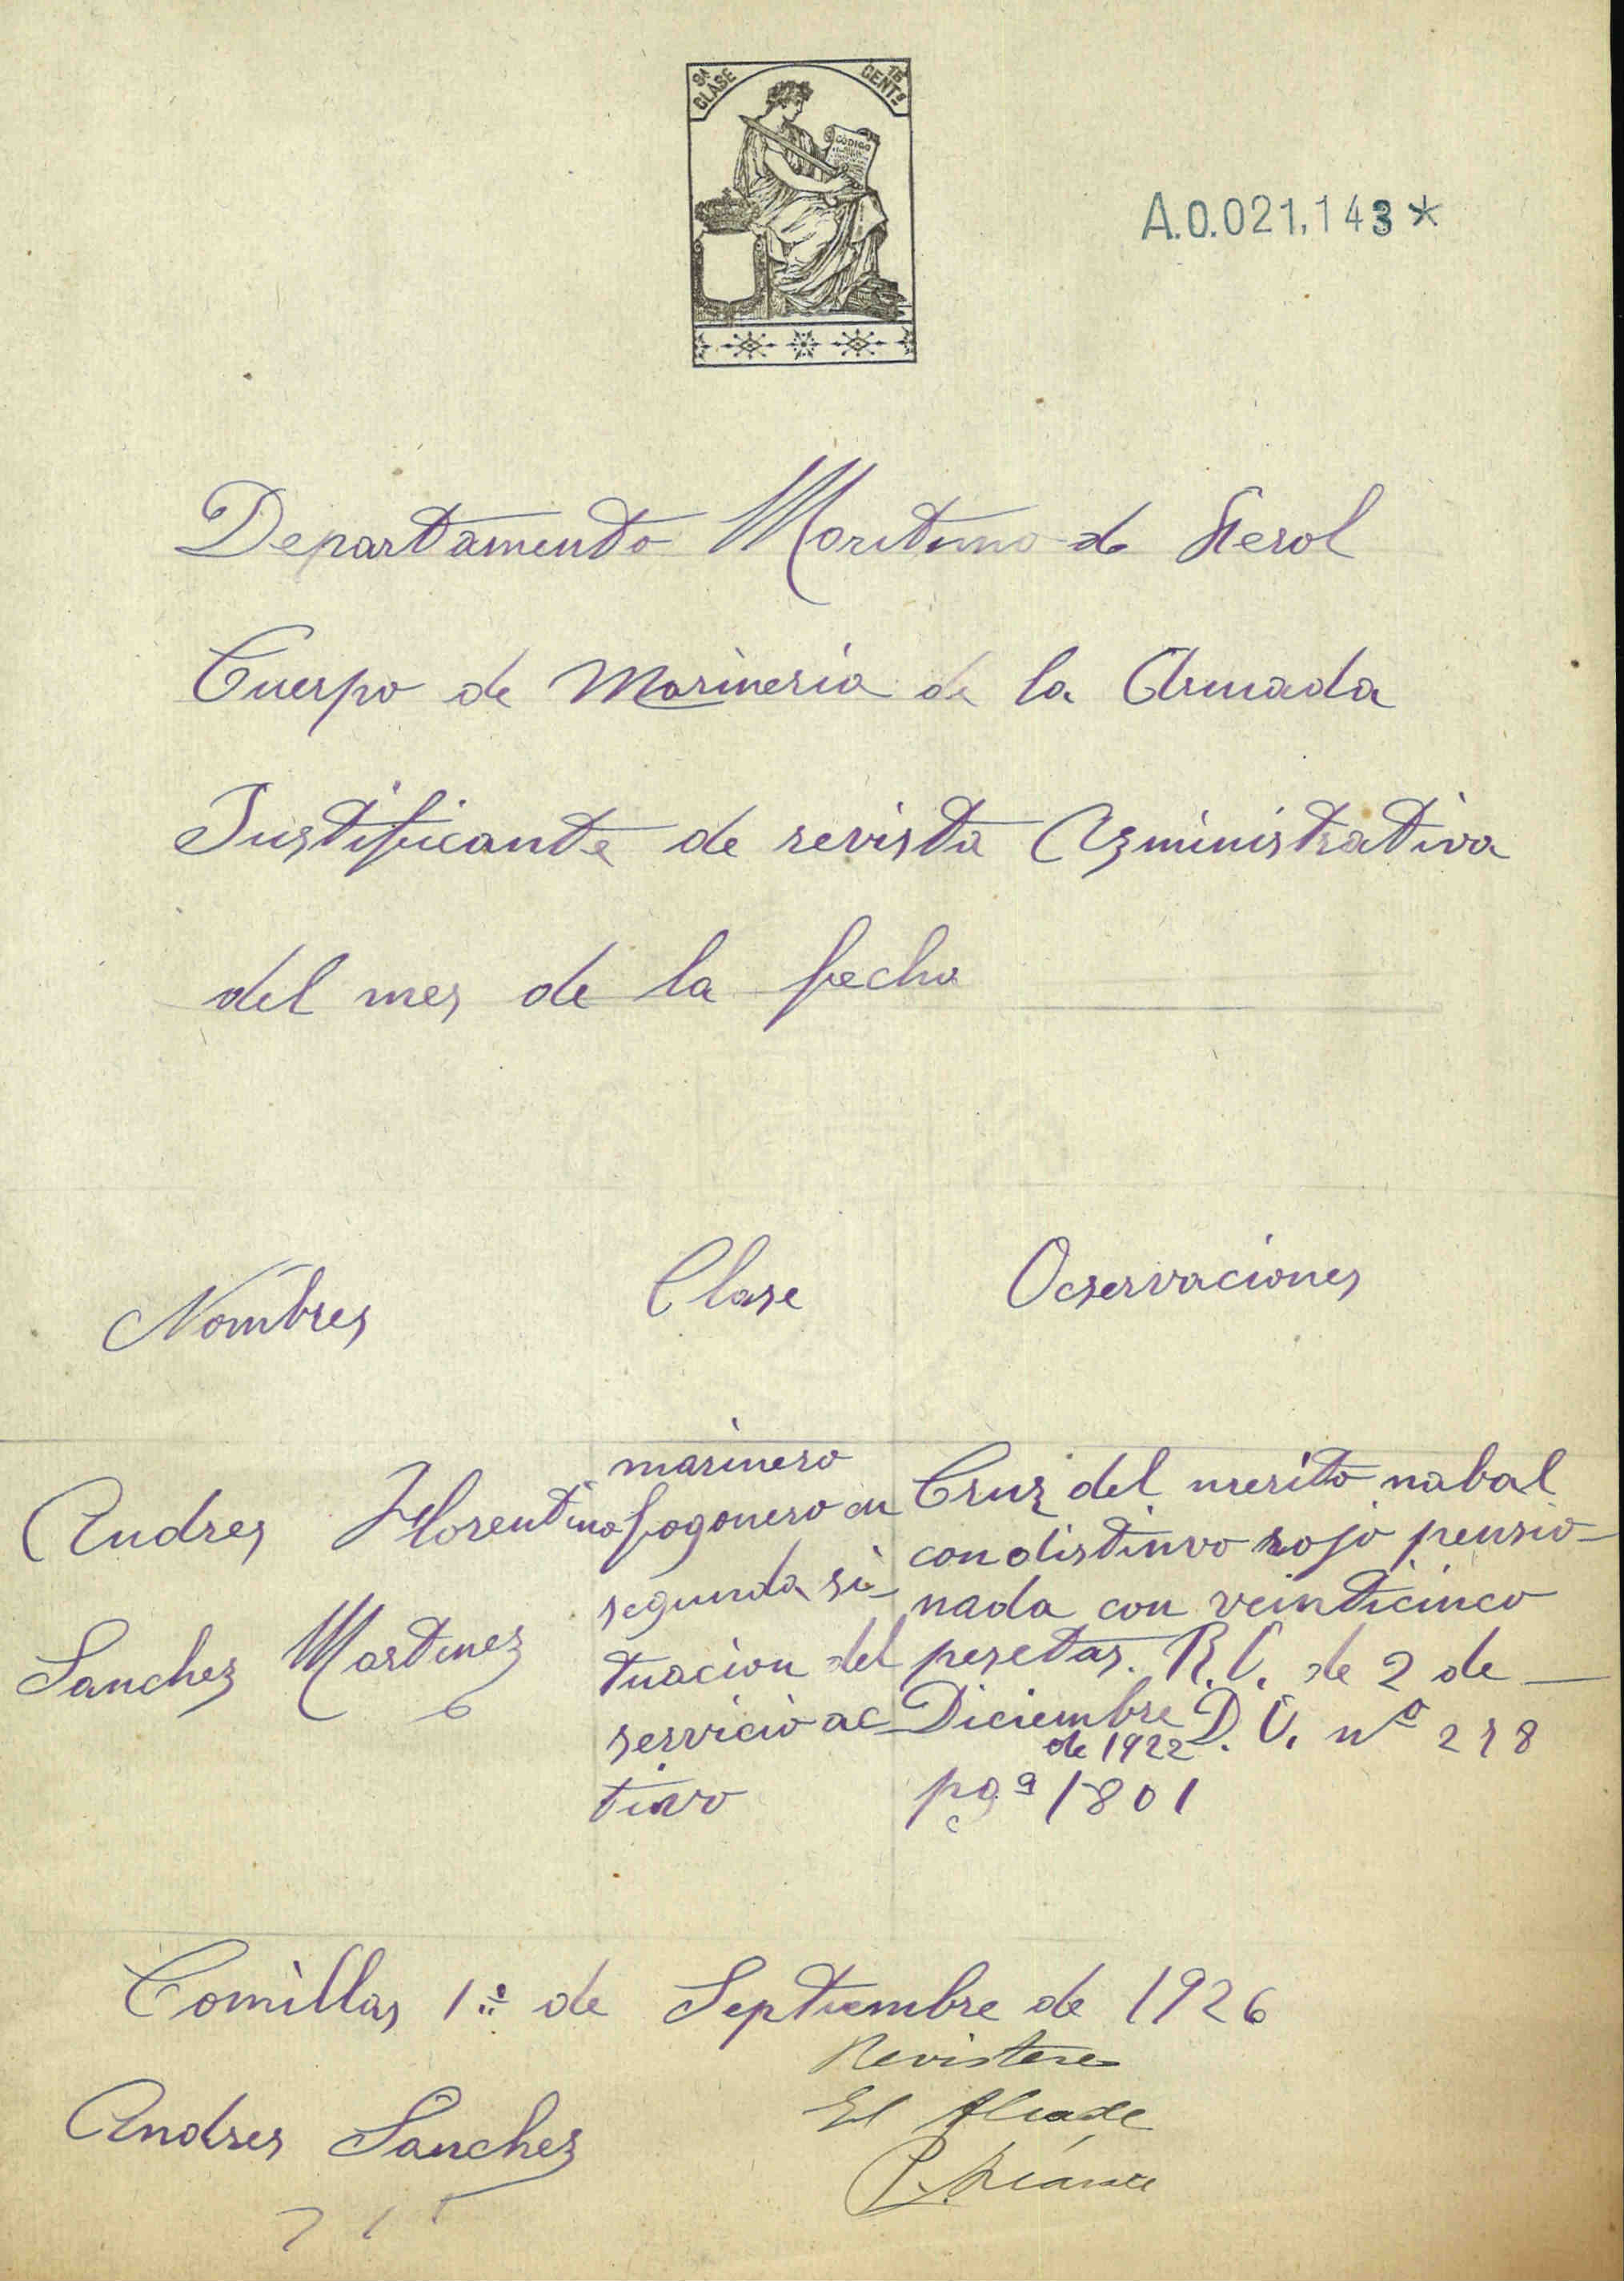 9ª CLASE
15 CENTs
CÓDIGO
A.0.021.143*
Departamento Maritimo de Ferol
Cuerpo de Marineria de la Armada
Justificante de revista Azministrativa
del mes de la fecha
Nombres
Clase
Ocservaciones
Andres Florentino
Sanchez Martinez
marinero
fogonero en
segunda si-
tuacion del
servicio ac-
tivo
Cruz del merito nabal
con distinvo rojo pensio-
nada con veinticinco
pesetas. R.O. de 2 de
Diciembre D.O. nº 278
de 1922
pgª 1801
Comillas 1º de Septiembre de 1926
Revistere
El Alcade
Andres Sanchez